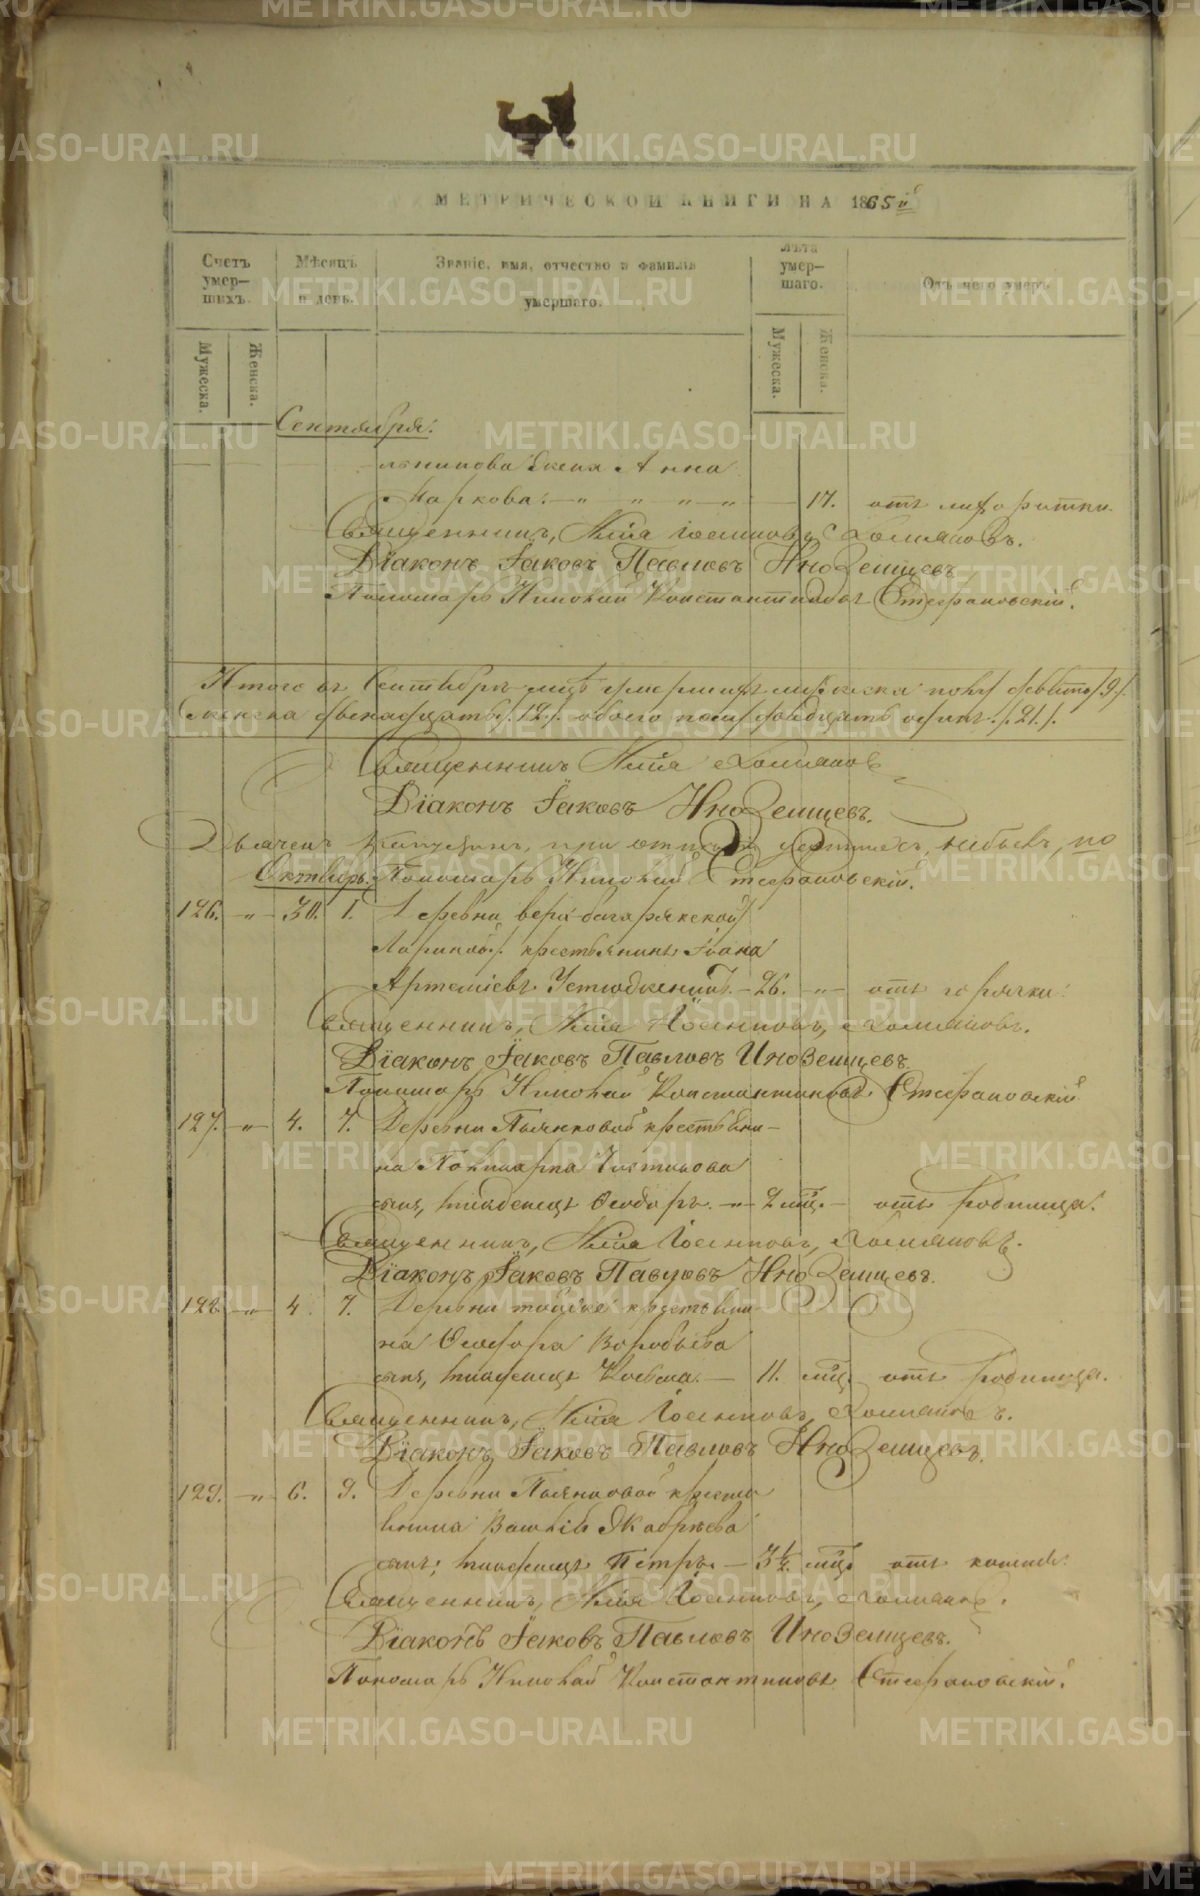 МЕТРИЧЕСКОЙ КНИГИ НА 1865й
Счетъ умер-шихъ.
Мѣсяцъ и день.
Званіе, имя, отчество и фамилія умершаго.
Лѣта умер-шаго.
Отъ чего умеръ.
Мужеска. Женска. Мужеска. Женска.
Сентября.
Анна
Маркова. 17. отъ лихорадки.
Священникъ, Илія Іосиповъ Холмановъ.
Діаконъ Іаковъ Павловъ Иноземцевъ
Пономарь Николай Константиновъ Стефановскій.
Итого въ Сентябрѣ мцѣ умершихъ мужеска полу девять /9/.
женска двенадцать /12/. обоего полу двадцать одинъ. /21./.
Священникъ Илія Холманов
Діаконъ Іаковъ Иноземцевъ.
при небылъ, по
Октябрь. Пономарь Николай Стефановскій.
126. " 30. 1. Деревни верх-багарякской
крестьянинъ
Артеміевъ 26. " отъ горячки.
Священникъ, Илія Іосиповъ, Холмановъ.
Діаконъ Іаковъ Павловъ Иноземцевъ
Пономарь Николай Константиновъ Стефановскій
127. " 4. 7. Деревни Пьянковой крестьяни-
на Поликарпа Чистякова
сынъ, младенецъ Ѳеодоръ. " 2 мц. отъ родимца.
Священникъ, Илія Іосиповъ, Холмановъ.
Діаконъ Іаковъ Павловъ Иноземцевъ.
128. " 4. 7. Деревни тойже крестьяни-
на Ѳеодора Воробьева
сынъ, младенецъ Косьма. 11. мц. отъ родимца.
Священникъ, Илія Іосиповъ, Холмановъ.
Діаконъ Іаковъ Павловъ Иноземцевъ.
129. " 6. 9. Деревни Пьянковой кресть
янина Василія
сынъ, младенецъ Петръ. 3½ мц. отъ кашля.
Священникъ, Илія Іосиповъ, Холманов.
Діаконъ Іаковъ Павловъ Иноземцевъ.
Пономарь Николай Константиновъ Стефановскій.
METRIKI.GASO-URAL.RU